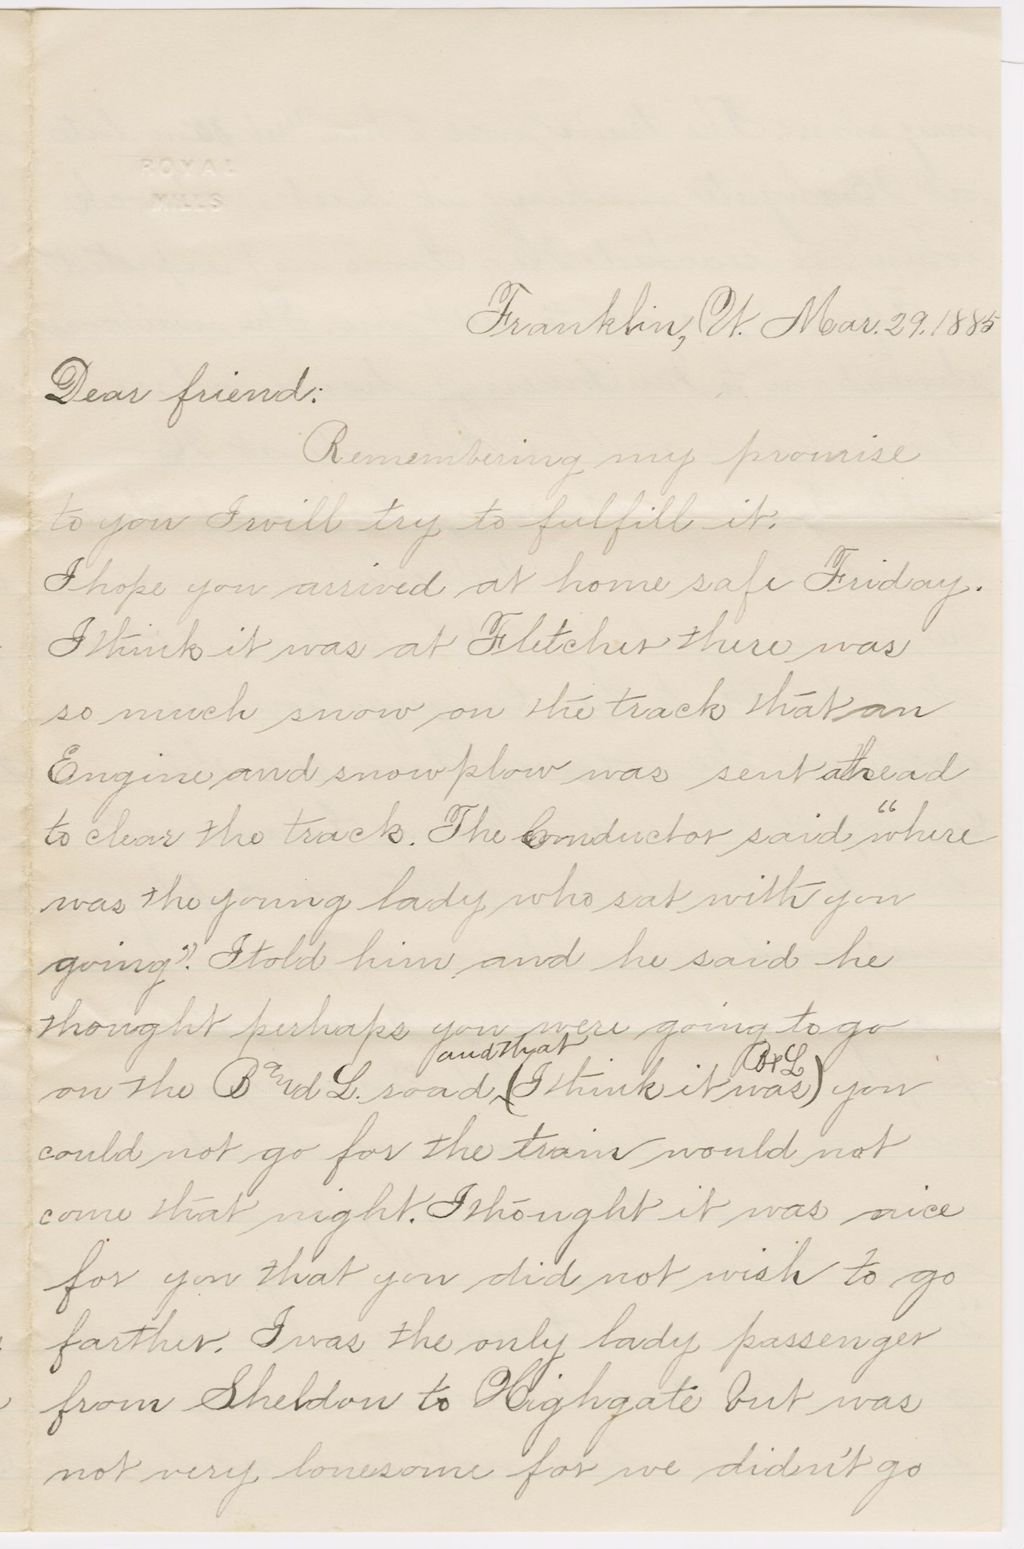 ROYAL
MILLS
Franklin, Vt. Mar. 29. 1885
Dear friend:
Remembering my promise
to you I will try to fulfill it.
I hope you arrived at home safe Friday.
I think it was at Fletcher there was
so much snow on the track that an
Engine and snow plow was sent ahead
to clear the track. The Conductor said "where
was the young lady who sat with you
going". I told him and he said he
thought perhaps you were going to go
and that B & L
on the B and L. road, (I think it was) you
could not go for the train would not
come that night. I thought it was nice
for you that you did not wish to go
farther. I was the only lady passenger
from Sheldon to Highgate but was
not very lonesome for we didn't go